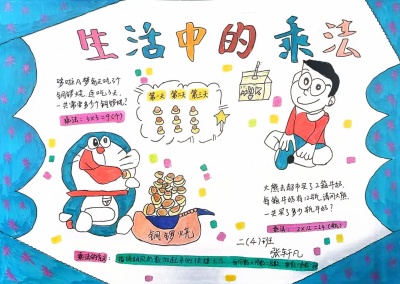 生活中的乘法
哆啦A梦每天吃3个
铜锣烧，连吃3天，
一共需要多少个铜锣烧？
乘法：3×3=9(个)
第一天 第二天 第三天
大熊去超市买了2箱牛奶，
每箱牛奶有12瓶，请问大熊
一共买了多少瓶牛奶？
乘法：2×12=24(瓶)
铜锣烧
二(4)班
张轩凡
乘法的意义：